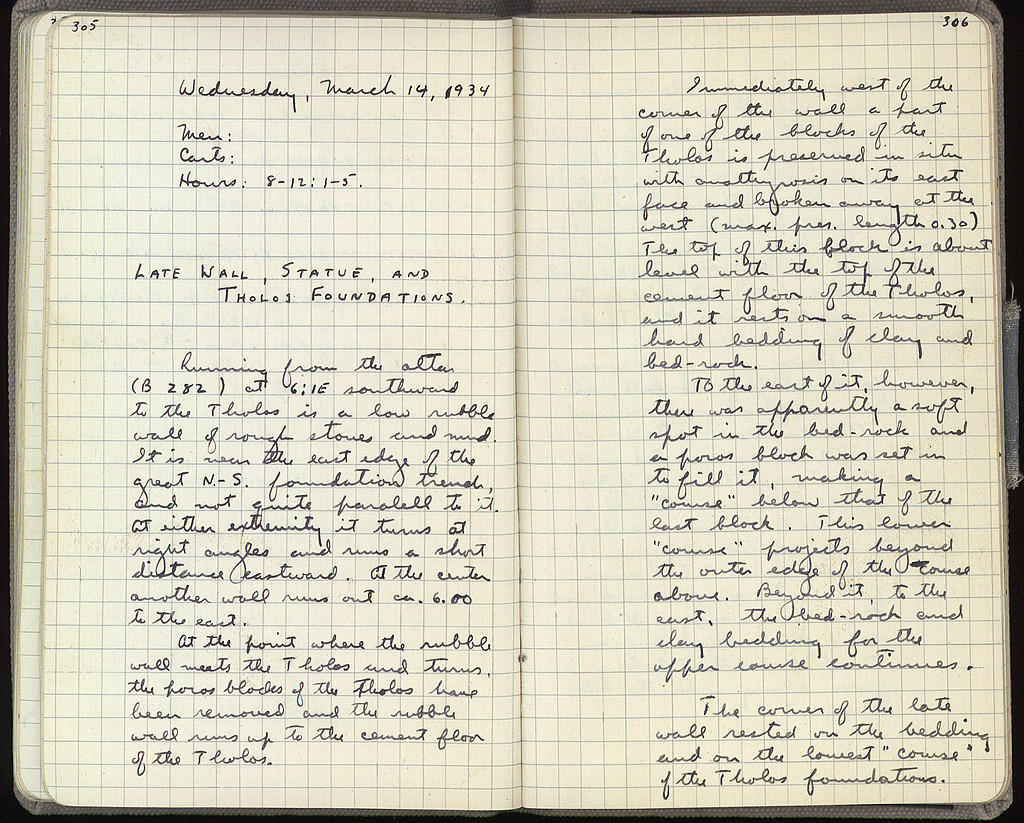 305
Wednesday, March 14, 1934
Men:
Carts:
Hours: 8-12: 1-5.
LATE WALL, STATUE, AND
THOLOS FOUNDATIONS.
Running from the altar
(B 282) at 6:1E southward
to the Tholos is a low rubble
wall of rough stones and mud.
It is near the east edge of the
great N.-S. foundation trench,
and not quite paralell to it.
At either extremity it turns at
right angles and runs a short
distance eastward. At the center
another wall runs out ca. 6.00
to the east.
At the point where the rubble
wall meets the Tholos and turns,
the poros blocks of the Tholos have
been removed and the rubble
wall runs up to the cement floor
of the Tholos.
306
Immediately west of the
corner of the wall a part
of one of the blocks of the
Tholos is preserved in situ
with anathyrosis on its east
face and broken away at the
west (max. pres. length 0.30)
The top of this block is about
level with the top of the
cement floor of the Tholos,
and it rests on a smooth
hard bedding of clay and
bed-rock.
To the east of it, however,
there was apparently a soft
spot in the bed-rock and
a poros block was set in
to fill it, making a
"course" below that of the
last block. This lower
"course" projects beyond
the outer edge of the course
above. Beyond it, to the
east, the bed-rock and
clay bedding for the
upper course continues.
The corner of the late
wall rested on the bedding
and on the lowest "course"
of the Tholos foundations.